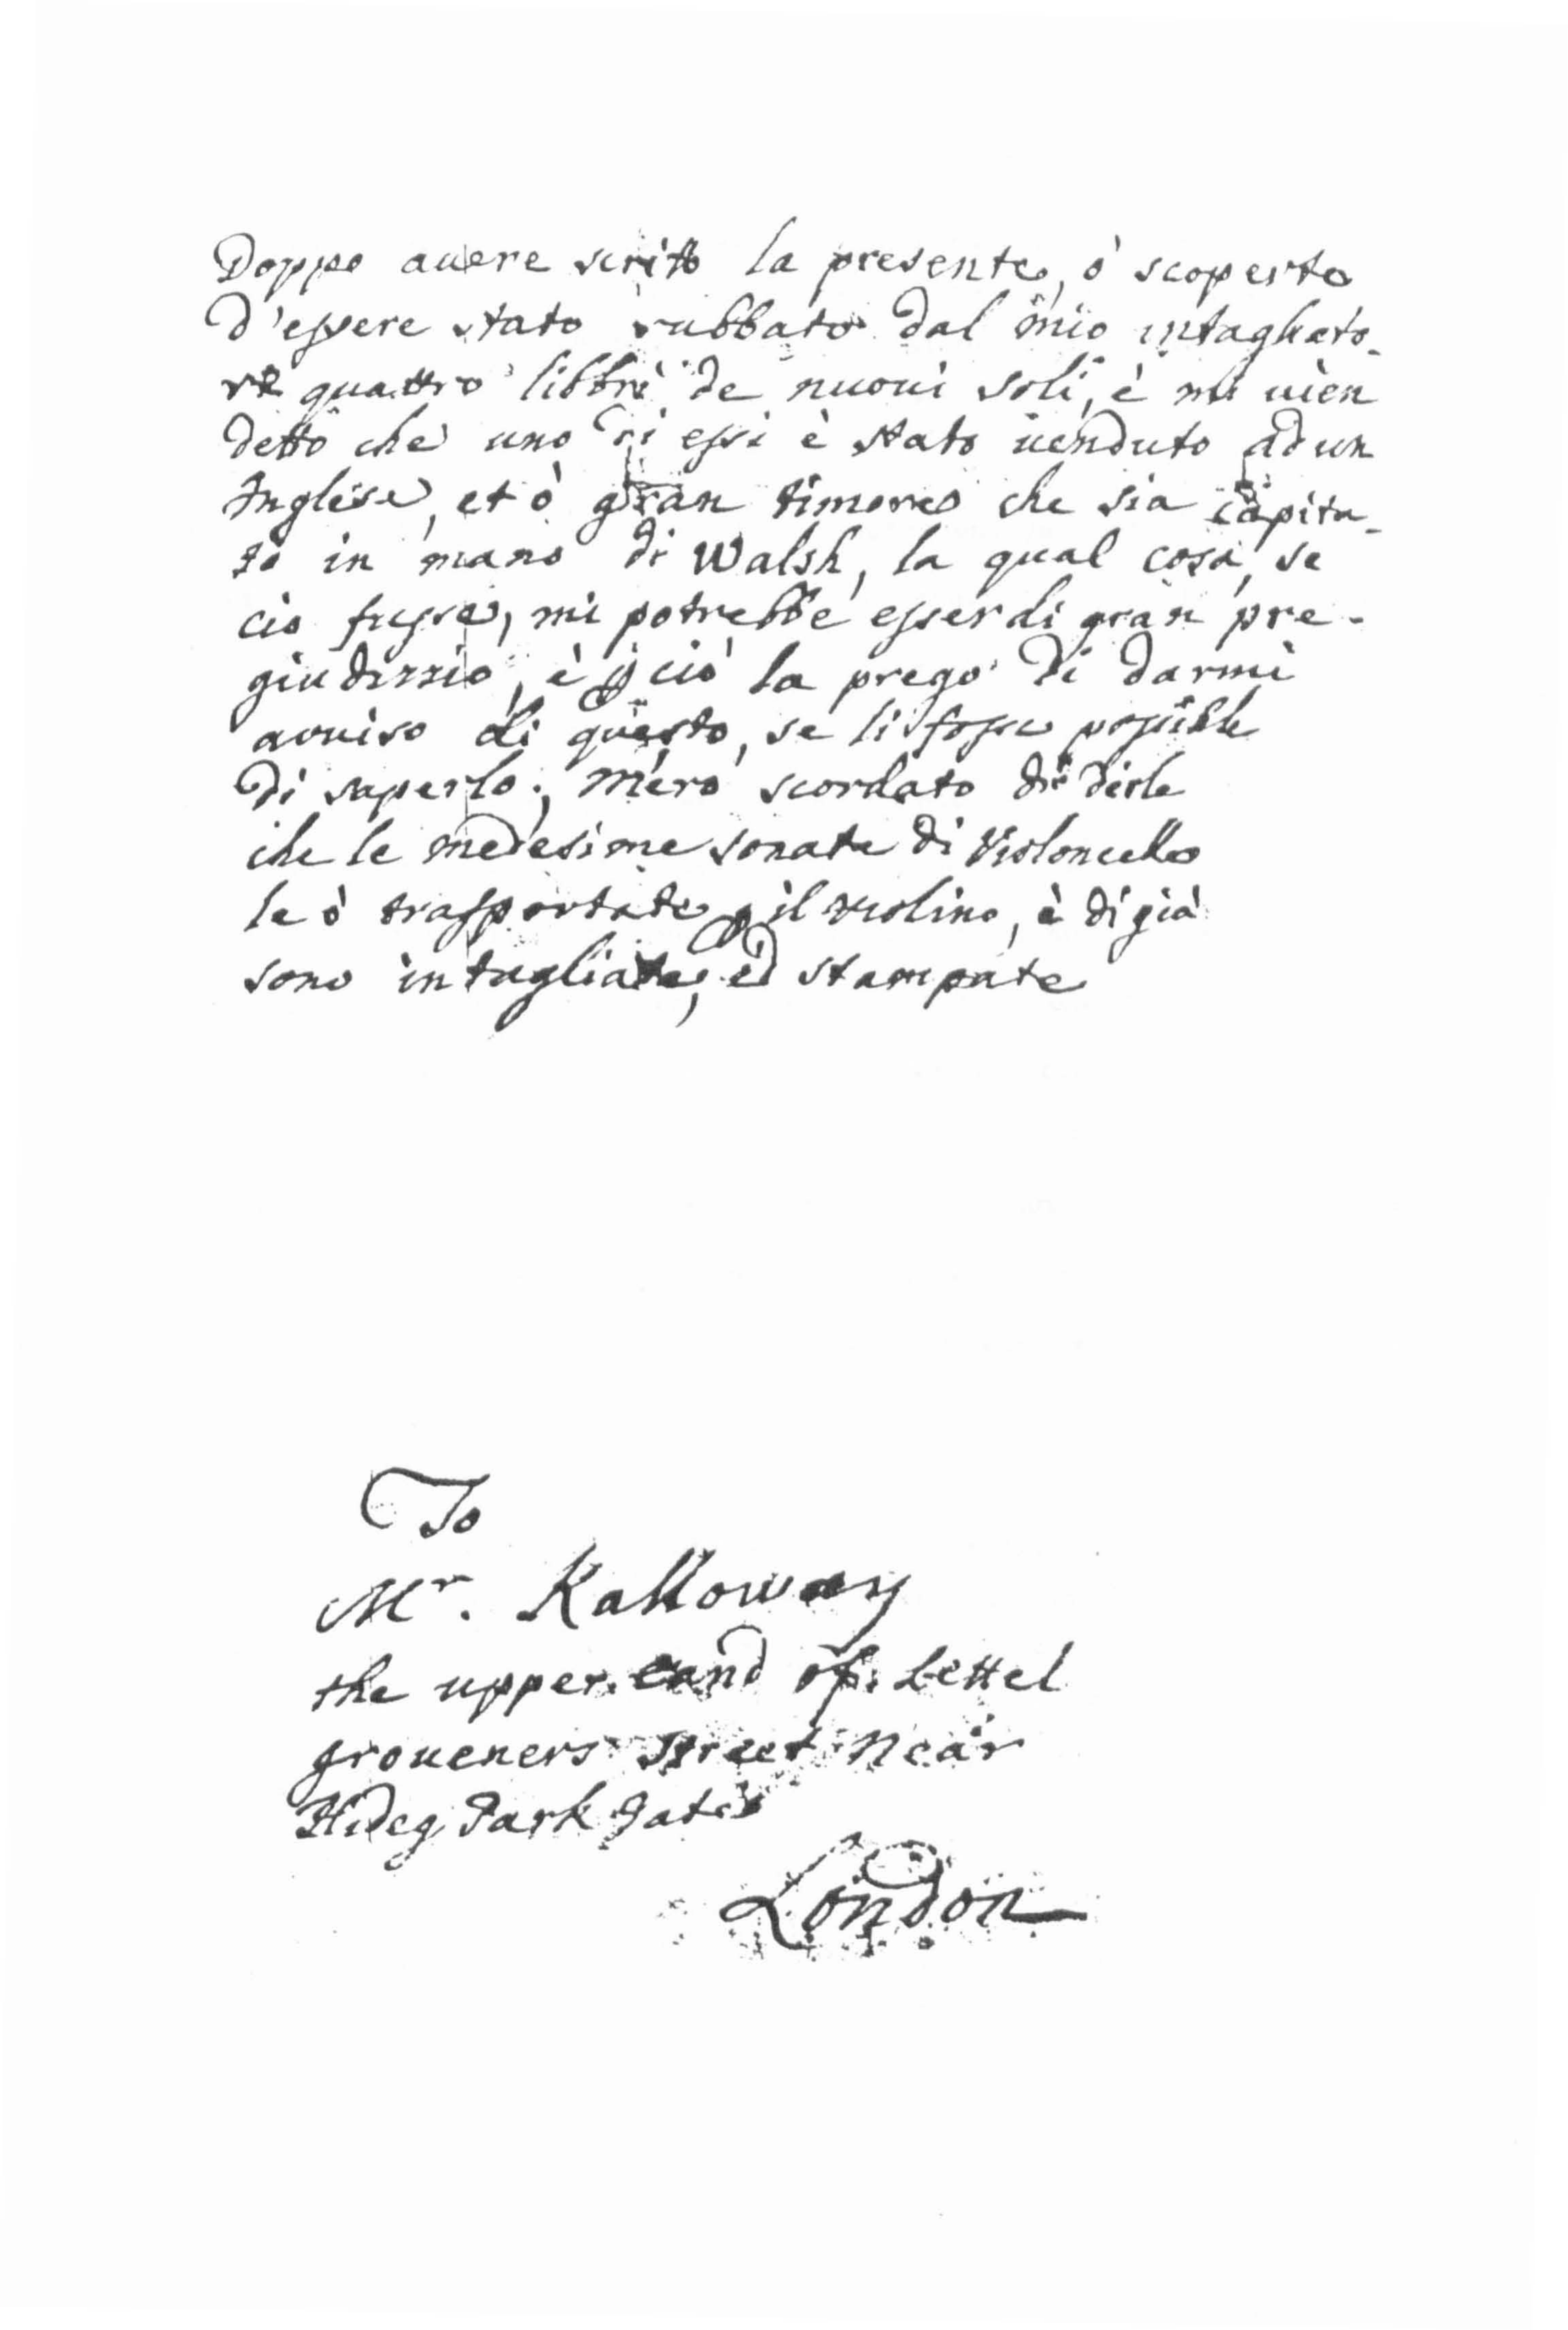 Doppo auere scritto la presente, ò scoperto
d'essere stato rubbato dal mio intagliato-
re quattro libbri de nuoui soli, è mi uien
detto che uno di essi è stato uenduto ad un
Inglese, et ò gran timore che sia capita-
to in mano di Walsh, la qual cosa, se
cio fusse, mi potrebbe esser di gran pre-
giudizzio, è p ciò la prego di darmi
auuiso di questo, se li fosse possibile
di saperlo; m'ero scordato di dirle
che le medesime sonate di Violoncello
le ò trasportate p il violino, è di già
sono intagliate, ed stampate
To
Mr. Kalloway
the upper eand of Lettel
groueners street near
Hideg Park gates
London